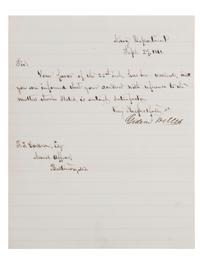 Navy Department
Sept. 27, 1861
Sir:
Your favor of the 25th inst. has been received, and
you are informed that your conduct with reference to the
matter therein stated is entirely satisfactory.
Very Respectfully, &c
Gideon Welles
Esq.
Naval Officer
Baltimore, Md.